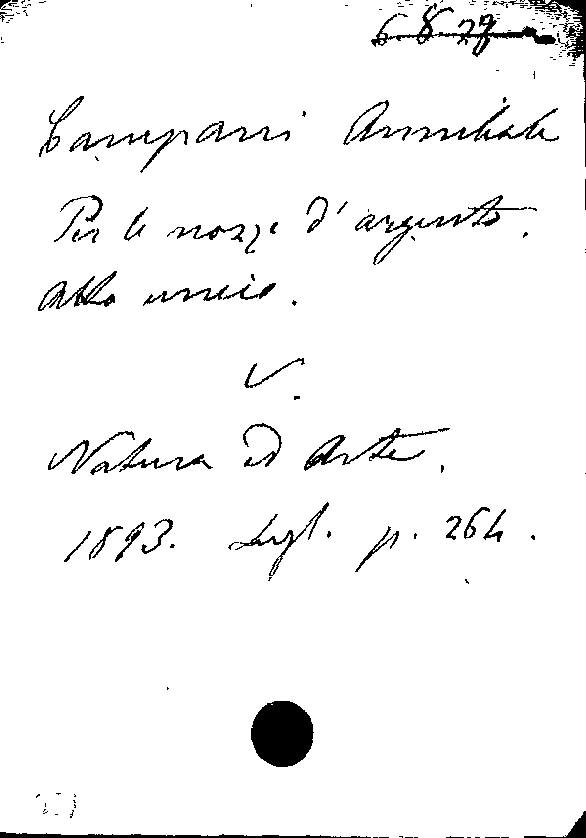 6.8.27
Campani Annibale
Per le nozze d'argento.
Atto unico.
V.
Natura ed Arte.
1893. Lugl. p. 264.